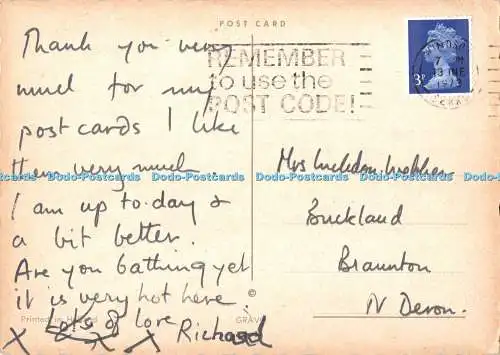 POST CARD
Thank you very
much for my
post cards I like
them very much
I am up to day &
a bit better.
Are you bathing yet
it is very hot here.
Lots of love
X X X Richard
Printed in
GRAV
©
REMEMBER
to use the
POST CODE!
WINDSOR
7 PM
13 JNE
1973
BERKS
3P
Mrs
Buckland
Braunton
N Devon.
Dodo-Postcards Dodo-Postcards Dodo-Postcards Dodo-Postcards Dodo-Postcards